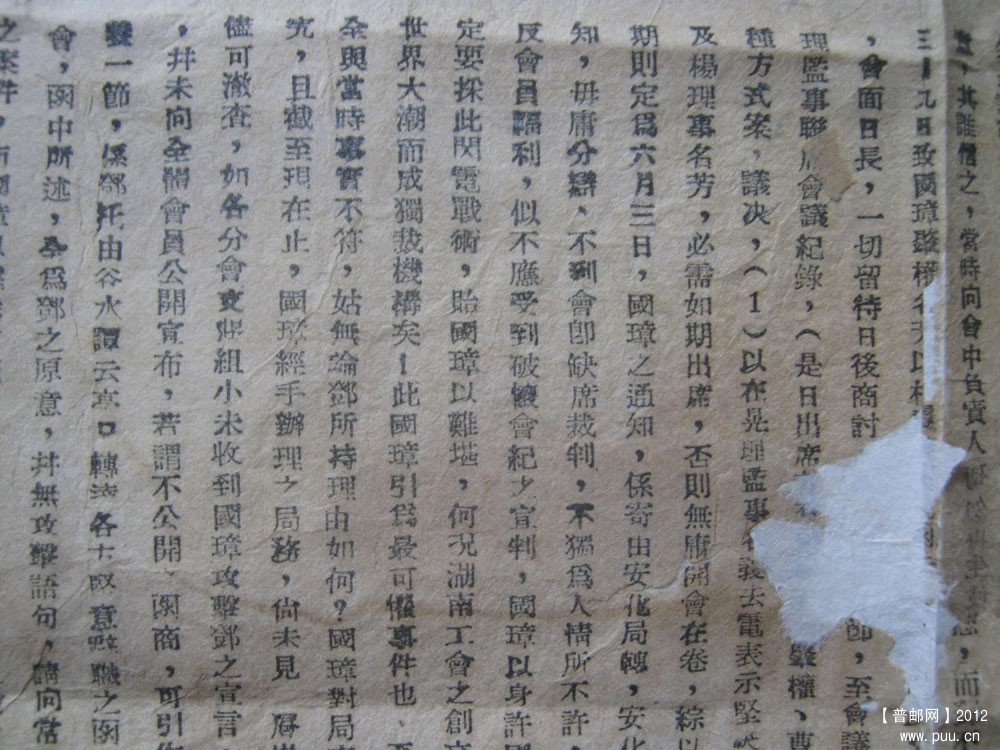 其誰信之，當時向會中負責人
，而
三十九日致國璋
，會面日長，一切留待日後商討
節，至會議
理監事聯席會議紀錄，（是日出席
權，曹
種方式案，議決，（1）以在晃理監事名義去電表示堅
及楊理事名芳，必需如期出席，否則無庸開會在卷，綜以
期則定爲六月三日，國璋之通知，係寄由安化局轉，安化
知，毋庸分辯、不到會卽缺席裁判，不獨爲人情所不許，
反會員福利，似不應受到破懷會紀之宣判，國璋以身許國
定要採此閃電戰術，貽國璋以難堪，何况湖南工會之創立
世界大潮而成獨裁機構矣！此國璋引爲最可懼事件也、至
全與當時事實不符，姑無論鄧所持理由如何？國璋對局
究，且截至現在止，國璋經手辦理之局務，尙未見
儘可澈查，如各分會支組小未收到國璋攻擊鄧之宣言
，幷未向全體會員公開宣布，若謂不公開、函商，可引
雙一節，係鄧托由谷水譚云亭口轉達各
意辭職之函
會，函中所述，全爲鄧之原意，幷無攻擊語句，請向常
之案件，
【普邮网】2012
www.puu.cn